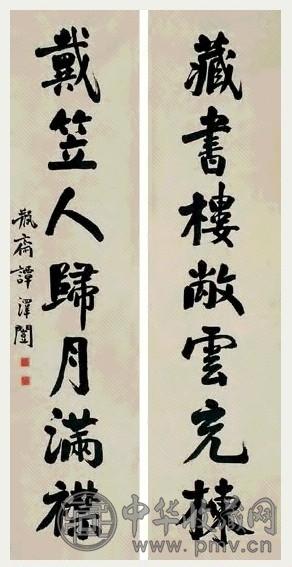 藏書樓敞雲充棟
戴笠人歸月滿襟
瓶齋譚澤闓
中华收藏网
www.pmv.cn